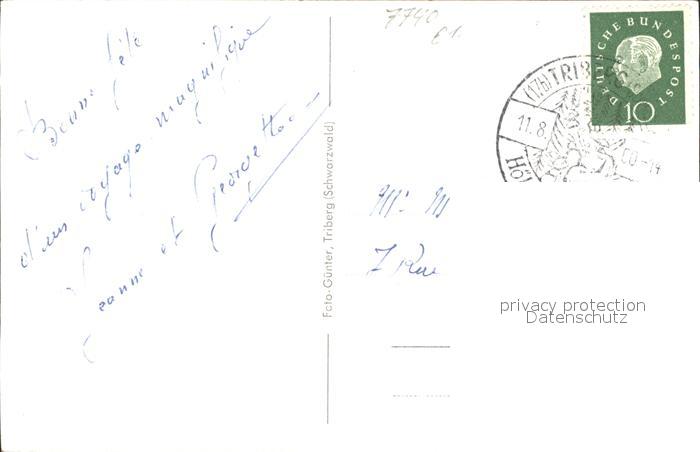 Bonne fête
d'un voyage magnifique
Jeanne et Georgette
Foto-Günter, Triberg (Schwarzwald)
7740
€1.
DEUTSCHE BUNDESPOST
10
(17b) TRIB
11.8.
00-14
Hö
Mr. M
7 Rue
privacy protection
Datenschutz